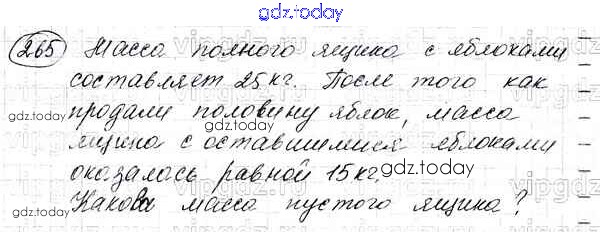 gdz.today
265 Масса полного ящика с яблоками
составляет 25 кг. После того как
gdz.today
продали половину яблок, масса
gdz.today
ящика с оставшимися яблоками
gdz.today
оказалась равной 15 кг.
gdz.today
Какова масса пустого ящика?